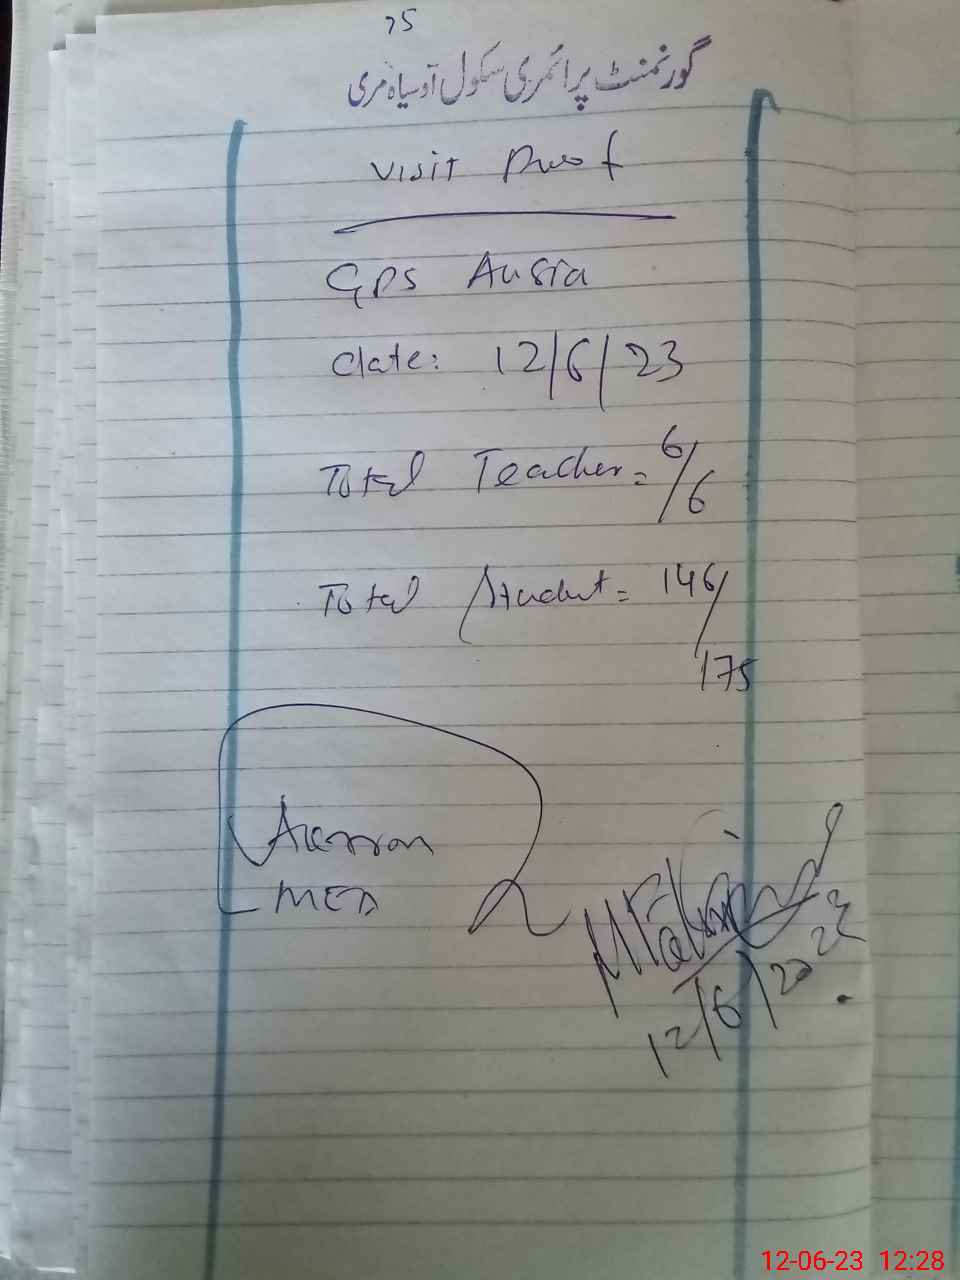 25
گورنمنٹ پرائمری سکول آوسیاہ مری
Visit Proof
GPS Ausia
date: 12/6/23
Total Teacher = 6/6
Total Student = 146/175
MEA
12/6/2023
12-06-23 12:28